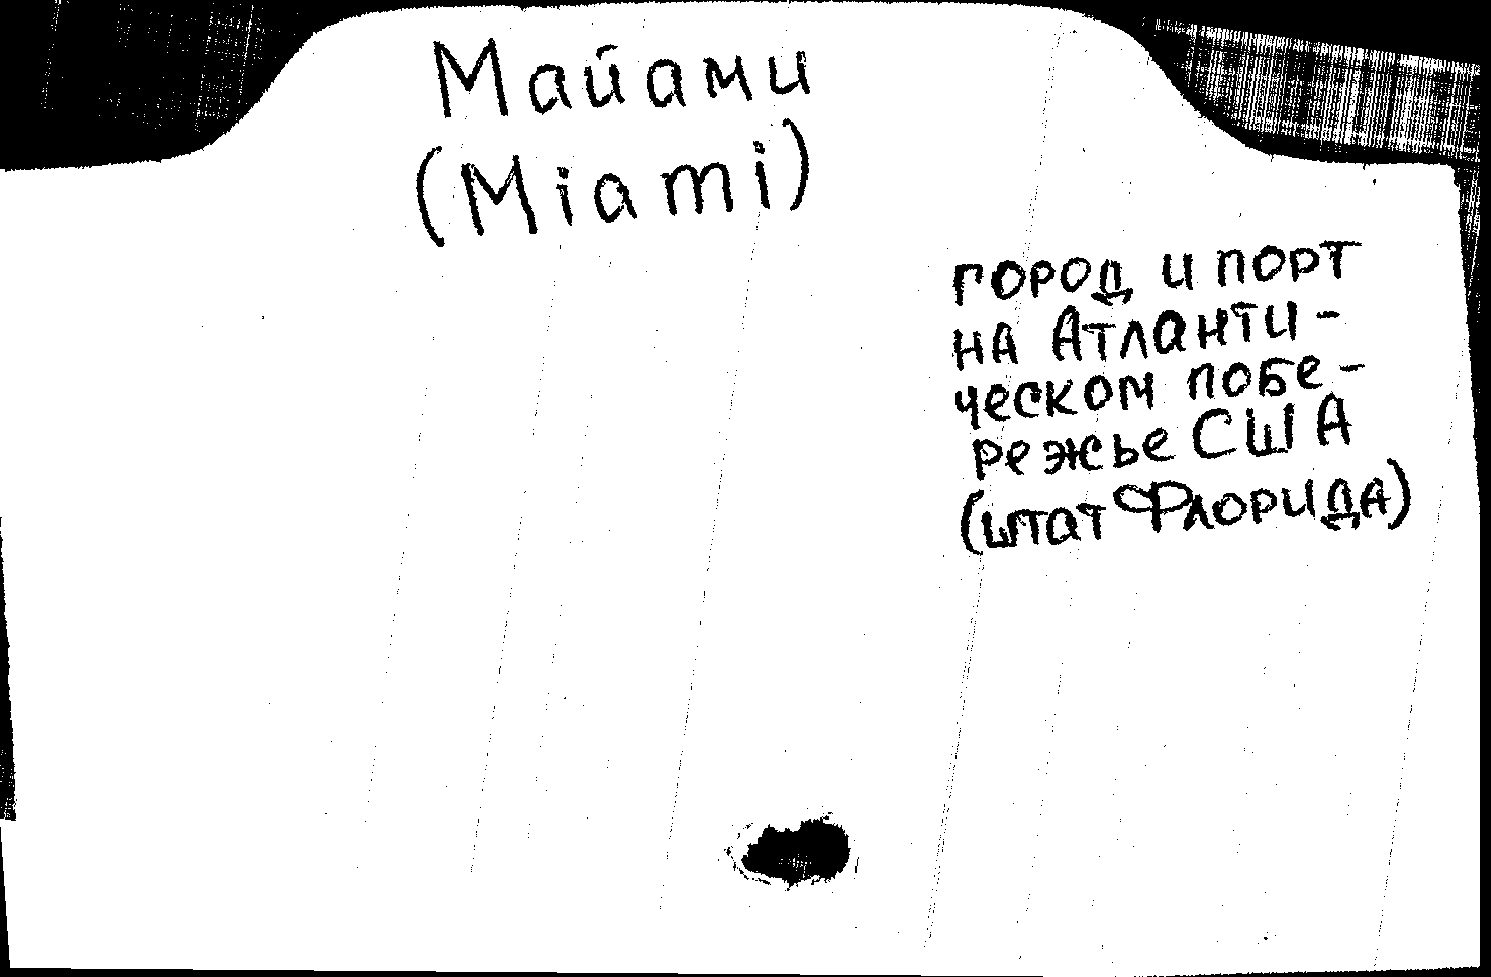 Майами
(Miami)
город и порт
на Атланти-
ческом побе-
режье США
(штат Флорида)